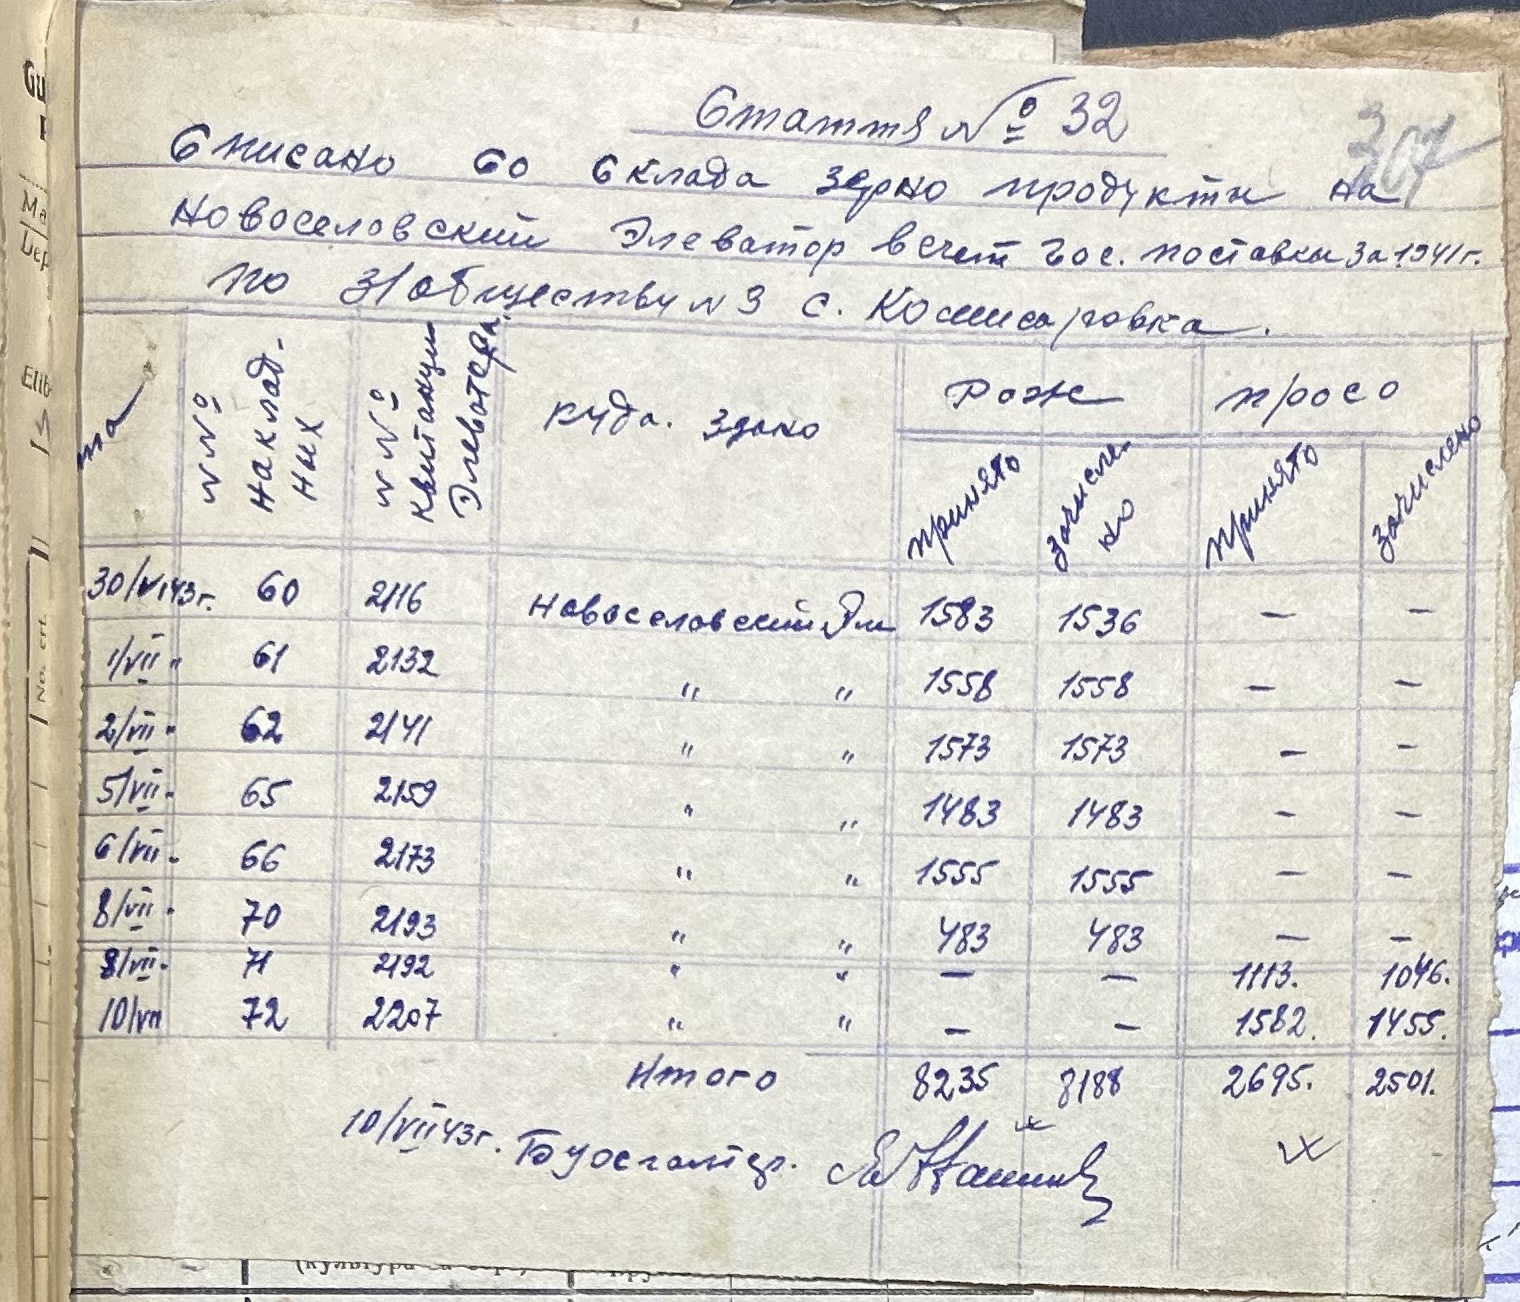 Стаття № 32
Списано со склада зерно продукти на
Новоселовский Элеватор в счет гос. поставки за 1941 г.
по з/обществу N 3 с. Комисаровка.
та
N№ накладных
N№ квитанции Элеватора
куда здано
рож
просо
принято
зачислено
принято
зачислено
30/VI 43г. 60 2116 Новоселовский Эл 1583 1536 — —
1/VII " 61 2132 " " 1558 1558 — —
2/VII " 62 2141 " " 1573 1573 — —
5/VII " 65 2159 " " 1483 1483 — —
6/VII " 66 2173 " " 1555 1555 — —
8/VII " 70 2193 " " 483 483 — —
8/VII " 71 2192 " " — — 1113. 1046.
10/VII 72 2207 " " — — 1582. 1455.
Итого 8235 8188 2695. 2501.
10/VII 43г. Бухгалтер.
No. crt.